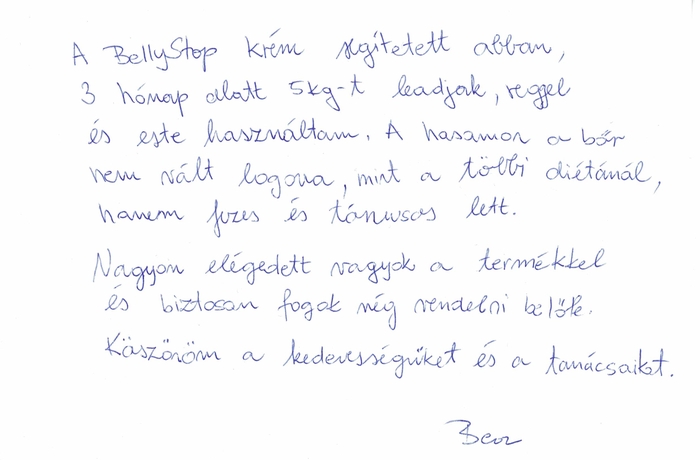 A BellyStop krém segítetett abban,
3 hónap alatt 5kg-t leadjak, reggel
és este használtam. A hasamon a bőr
nem vált logova, mint a többi diétánál,
hanem fezes és tónusos lett.
Nagyon elégedett vagyok a termékkel
és biztosan fogok még rendelni belőle.
Köszönöm a kedvességüket és a tanácsaikat.
Bea